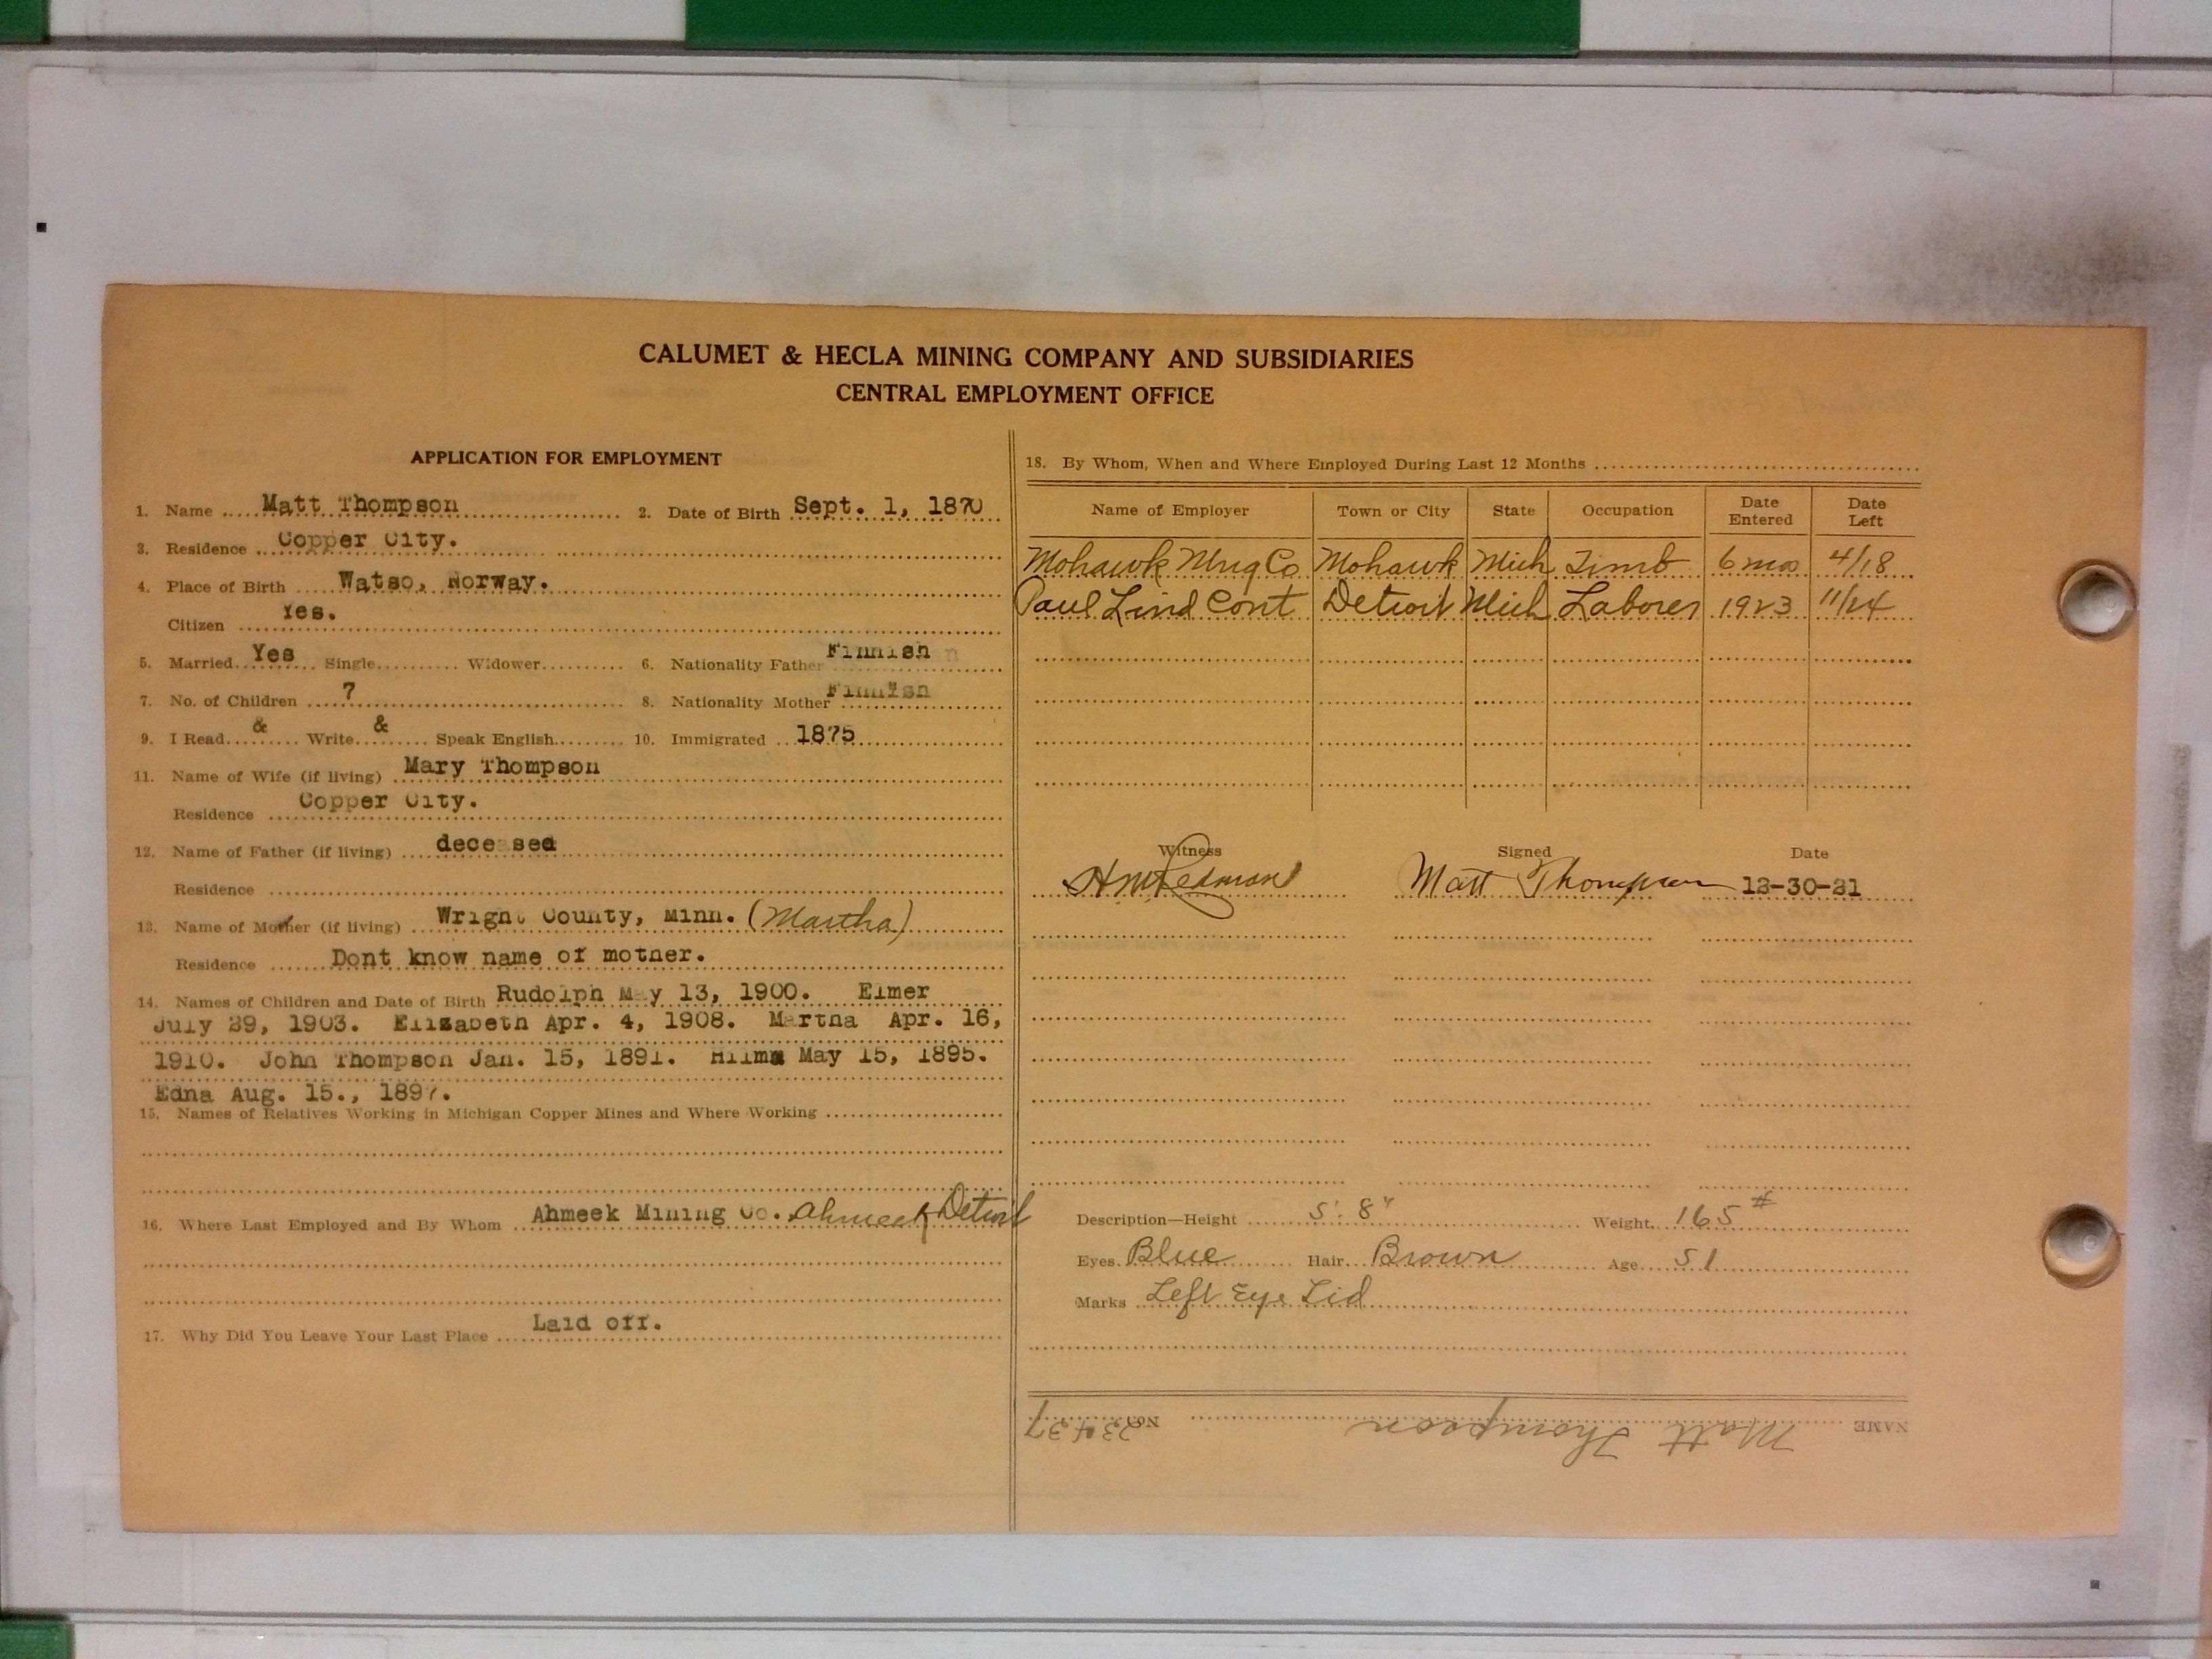 CALUMET & HECLA MINING COMPANY AND SUBSIDIARIES
CENTRAL EMPLOYMENT OFFICE
APPLICATION FOR EMPLOYMENT
1. Name Matt Thompson 2. Date of Birth Sept. 1, 1870
3. Residence Copper City.
4. Place of Birth Watso, Norway.
Citizen Yes.
5. Married Yes Single Widower 6. Nationality Father Finnish
7. No. of Children 7 8. Nationality Mother Finnish
9. I Read & Write & Speak English 10. Immigrated 1875
11. Name of Wife (if living) Mary Thompson
Residence Copper City.
12. Name of Father (if living) deceased
Residence
13. Name of Mother (if living) Wright County, Minn. (Martha)
Residence Dont know name of mother.
14. Names of Children and Date of Birth Rudolph May 13, 1900. Elmer
July 29, 1903. Elizabeth Apr. 4, 1908. Martha Apr. 16,
1910. John Thompson Jan. 15, 1891. Hilma May 15, 1895.
Edna Aug. 15., 1897.
15. Names of Relatives Working in Michigan Copper Mines and Where Working
16. Where Last Employed and By Whom Ahmeek Mining Co. Ahmeek Detroit
17. Why Did You Leave Your Last Place Laid off.
18. By Whom, When and Where Employed During Last 12 Months
Name of Employer Town or City State Occupation Date Entered Date Left
Mohawk Mng Co Mohawk Mich Timb 6 mos 4/18
Paul Lind Cont Detroit Mich Laborer 1923 11/24
Witness Signed Date
HM Redmond Matt Thompson 12-30-21
Description—Height 5' 8" Weight 165 #
Eyes Blue Hair Brown Age 51
Marks Left Eye Lid
NAME Matt Thompson No.